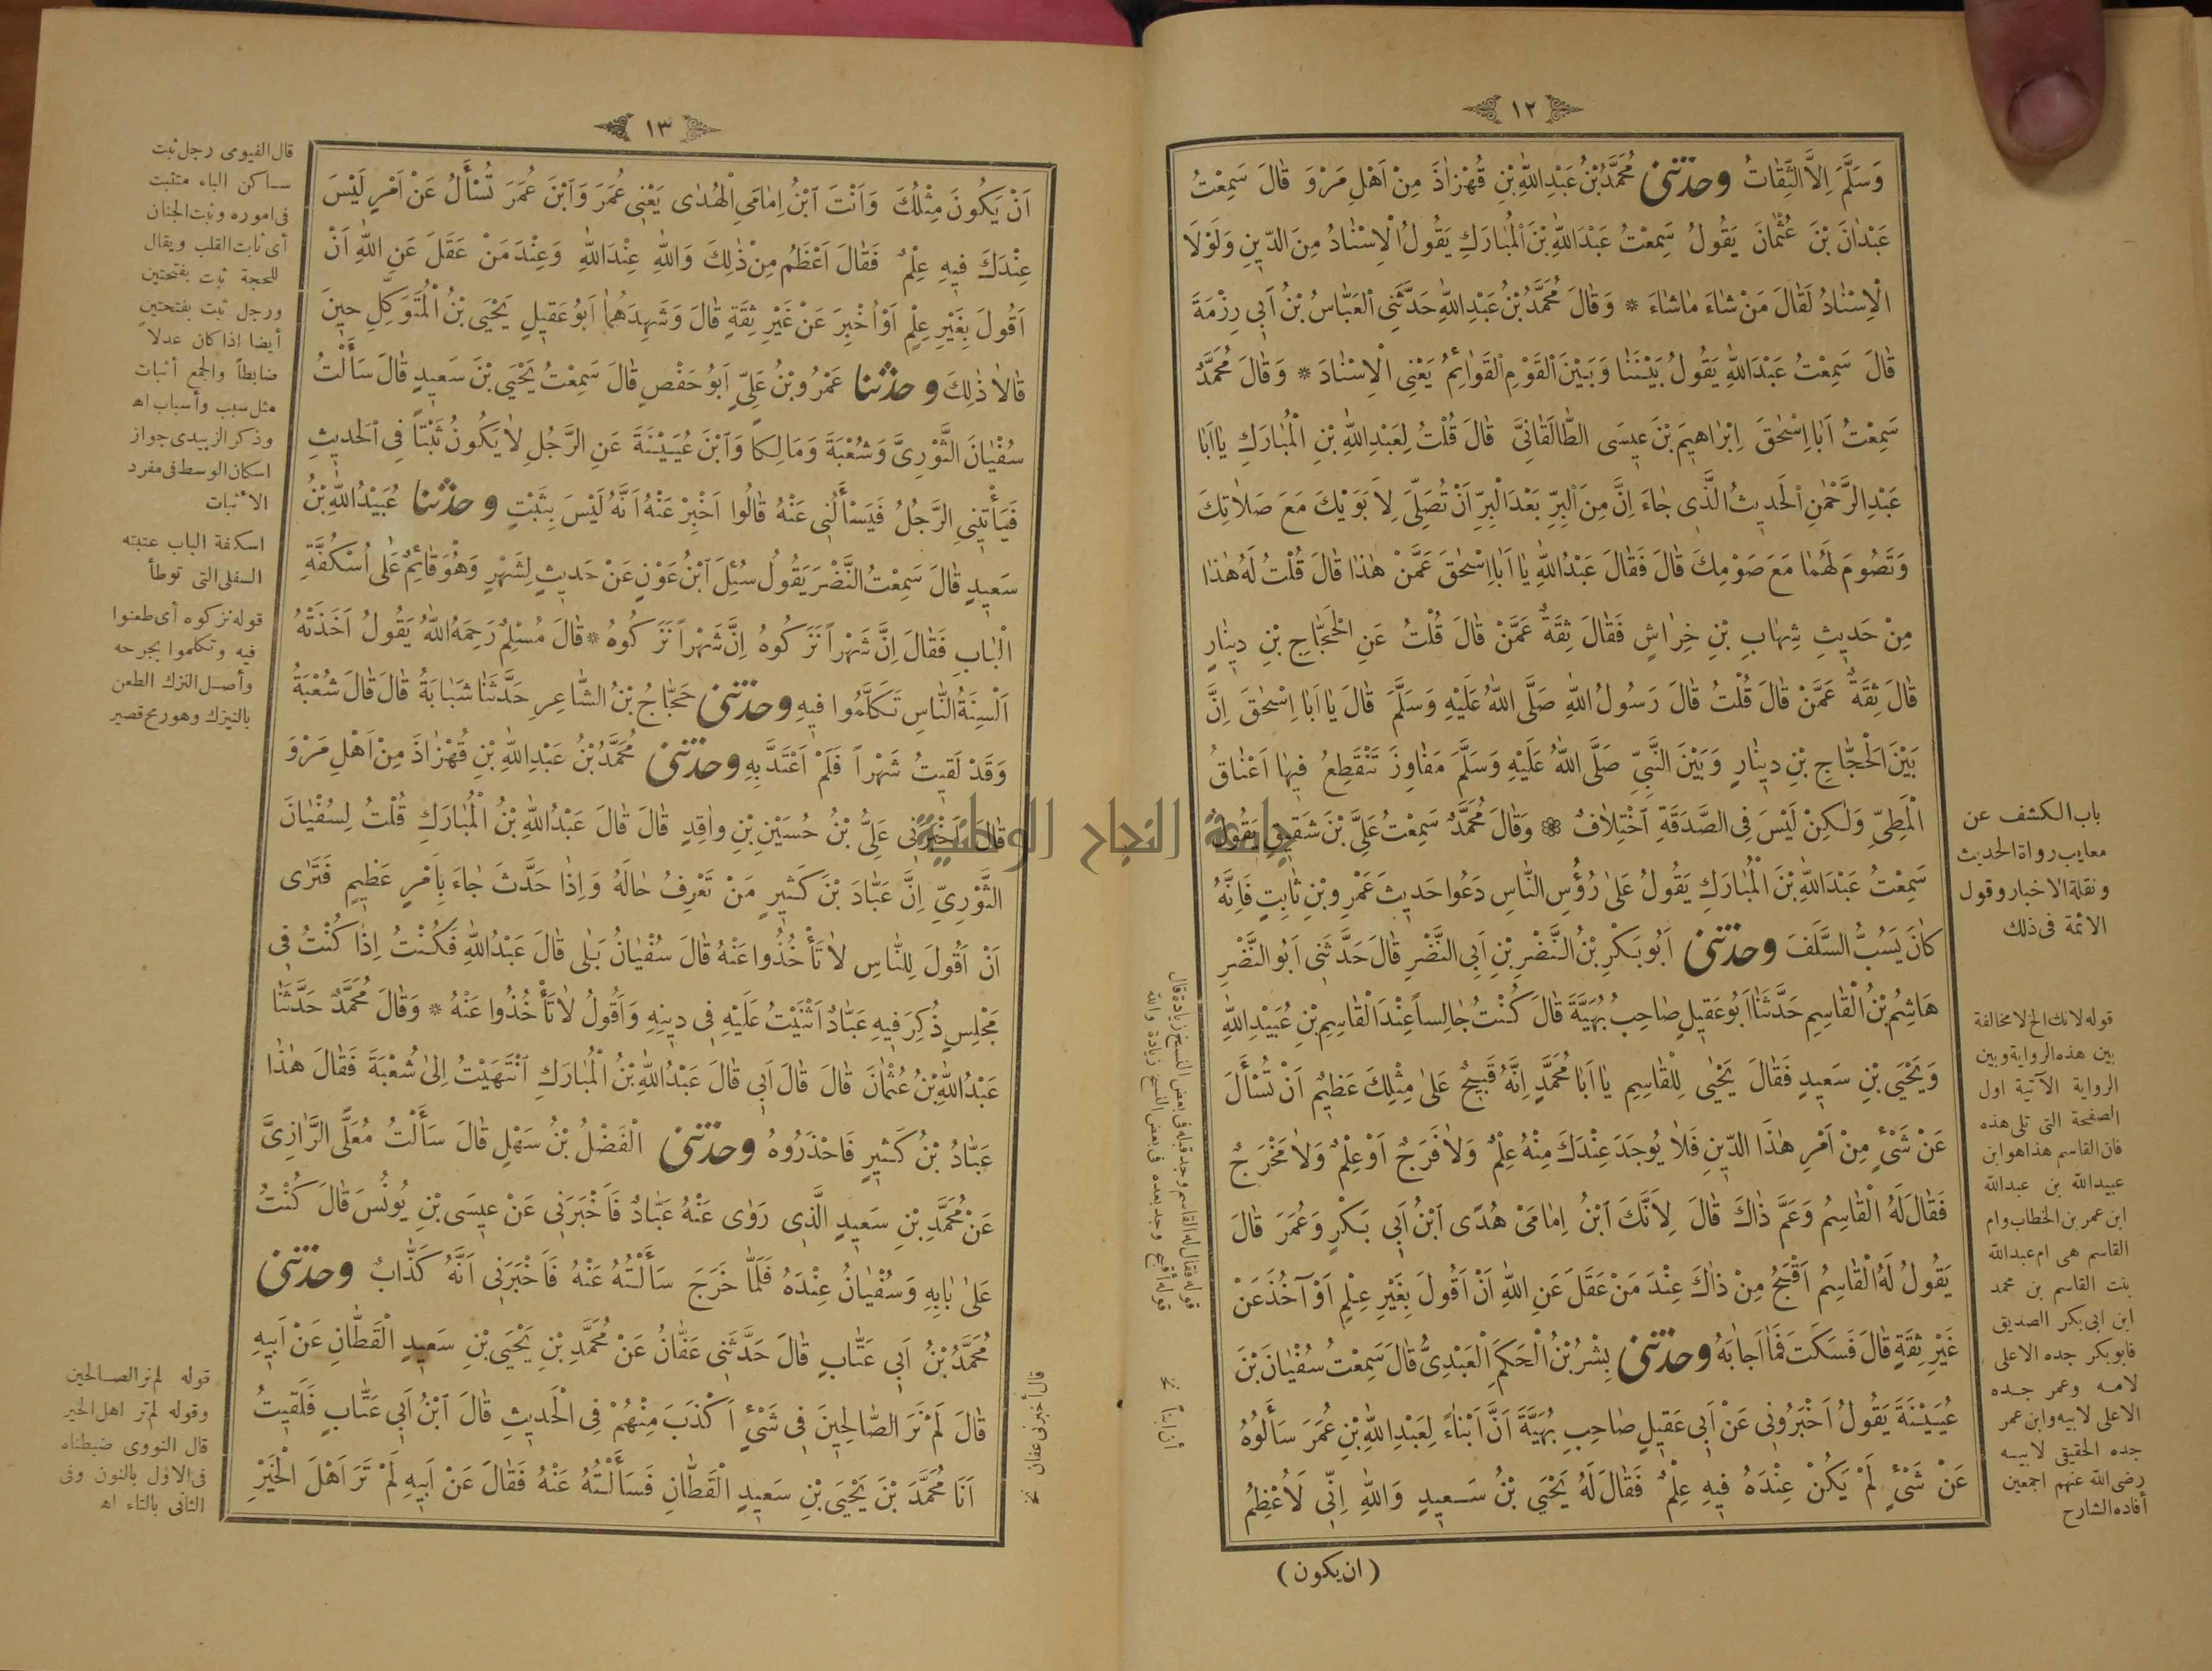 ١٢
وَسَلَّمَ اِلاَّ الثِّقٰاتُ وحدثنى مُحَمَّدُ بْنُ عَبْدِاللّٰهِ بْنِ قُهْزٰاذَ مِنْ اَهْلِ مَرْوَ قٰالَ سَمِعْتُ
عَبْدٰانَ بْنَ عُثْمٰانَ يَقُولُ سَمِعْتُ عَبْدَاللّٰهِ بْنَ الْمُبٰارَكِ يَقُولُ الْاِسْنٰادُ مِنَ الدّينِ وَلَوْلَا
الْاِسْنٰادُ لَقٰالَ مَنْ شٰاءَ مٰاشٰاءَ * وَقٰالَ مُحَمَّدُ بْنُ عَبْدِاللّٰهِ حَدَّثَنِى الْعَبّٰاسُ بْنُ اَبِى رِزْمَةَ
قٰالَ سَمِعْتُ عَبْدَاللّٰهِ يَقُولُ بَيْنَنٰا وَبَيْنَ الْقَوْمِ الْقَوٰائِمُ يَعْنِى الْاِسْنٰادَ * وَقٰالَ مُحَمَّدٌ
سَمِعْتُ اَبٰا اِسْحٰقَ اِبْرٰاهيمَ بْنَ عيسَى الطّٰالَقٰانِىَّ قٰالَ قُلْتُ لِعَبْدِاللّٰهِ بْنِ الْمُبٰارَكِ يٰا اَبٰا
عَبْدِالرَّحْمٰنِ الْحَديثُ الَّذى جٰاءَ اِنَّ مِنَ الْبِرِّ بَعْدَ الْبِرِّ اَنْ تُصَلِّىَ لِاَبَوَيْكَ مَعَ صَلاٰتِكَ
وَتَصُومَ لَهُمٰا مَعَ صَوْمِكَ قٰالَ فَقٰالَ عَبْدُاللّٰهِ يٰا اَبٰا اِسْحٰقَ عَمَّنْ هٰذٰا قٰالَ قُلْتُ لَهُ هٰذٰا
مِنْ حَديثِ شِهٰابِ بْنِ خِرٰاشٍ فَقٰالَ ثِقَةٌ عَمَّنْ قٰالَ قُلْتُ عَنِ الْحَجّٰاجِ بْنِ دينٰارٍ
قٰالَ ثِقَةٌ عَمَّنْ قٰالَ قُلْتُ قٰالَ رَسُولُ اللّٰهِ صَلَّى اللّٰهُ عَلَيْهِ وَسَلَّمَ قٰالَ يٰا اَبَا اِسْحٰقَ اِنَّ
بَيْنَ الْحَجّٰاجِ بْنِ دينٰارٍ وَبَيْنَ النَّبِىِّ صَلَّى اللّٰهُ عَلَيْهِ وَسَلَّمَ مَفٰاوِزَ تَنْقَطِعُ فيهٰا اَعْنٰاقُ
الْمَطِىِّ وَلٰكِنْ لَيْسَ فِى الصَّدَقَةِ اخْتِلاٰفٌ ❁ وَقٰالَ مُحَمَّدٌ سَمِعْتُ عَلِىَّ بْنَ شَقيقٍ يَقُولُ
سَمِعْتُ عَبْدَاللّٰهِ بْنَ الْمُبٰارَكِ يَقُولُ عَلىٰ رُؤُسِ النّٰاسِ دَعُوا حَديثَ عَمْرِو بْنِ ثٰابِتٍ فَاِنَّهُ
كٰانَ يَسُبُّ السَّلَفَ وحدثنى اَبُو بَكْرِ بْنُ النَّضْرِ بْنِ اَبِى النَّضْرِ قٰالَ حَدَّثَنى اَبُو النَّضْرِ
هٰاشِمُ بْنُ الْقٰاسِمِ حَدَّثَنٰا اَبُو عَقيلٍ صٰاحِبُ بُهَيَّةَ قٰالَ كُنْتُ جٰالِساً عِنْدَ الْقٰاسِمِ بْنِ عُبَيْدِاللّٰهِ
وَيَحْيَى بْنِ سَعيدٍ فَقٰالَ يَحْيٰى لِلْقٰاسِمِ يٰا اَبٰا مُحَمَّدٍ اِنَّهُ قَبيحٌ عَلىٰ مِثْلِكَ عَظيمٌ اَنْ تُسْأَلَ
عَنْ شَىْءٍ مِنْ اَمْرِ هٰذَا الدّينِ فَلاٰ يُوجَدَ عِنْدَكَ مِنْهُ عِلْمٌ وَلاٰ فَرَجٌ اَوْ عِلْمٌ وَلاٰ مَخْرَجٌ
فَقٰالَ لَهُ الْقٰاسِمُ وَعَمَّ ذٰاكَ قٰالَ لِاَنَّكَ ابْنُ اِمٰامَىْ هُدًى ابْنُ اَبى بَكْرٍ وَعُمَرَ قٰالَ
يَقُولُ لَهُ الْقٰاسِمُ اَقْبَحُ مِنْ ذٰاكَ عِنْدَ مَنْ عَقَلَ عَنِ اللّٰهِ اَنْ اَقُولَ بِغَيْرِ عِلْمٍ اَوْ آخُذَ عَنْ
غَيْرِ ثِقَةٍ قٰالَ فَسَكَتَ فَمٰا اَجٰابَهُ وحدثنى بِشْرُ بْنُ الْحَكَمِ الْعَبْدِىُّ قٰالَ سَمِعْتُ سُفْيٰانَ بْنَ
عُيَيْنَةَ يَقُولُ اَخْبَرُونى عَنْ اَبى عَقيلٍ صٰاحِبِ بُهَيَّةَ اَنَّ اَبْنٰاءً لِعَبْدِاللّٰهِ بْنِ عُمَرَ سَأَلُوهُ
عَنْ شَىْءٍ لَمْ يَكُنْ عِنْدَهُ فيهِ عِلْمٌ فَقٰالَ لَهُ يَحْيَى بْنُ سَعيدٍ وَاللّٰهِ اِنّى لَاُعْظِمُ
(ان يكون)
باب الكشف عن
معايب رواة الحديث
ونقلة الاخبار وقول
الائمة فى ذلك
قوله لانك الخ لا مخالفة
بين هذه الرواية وبين
الرواية الآتية اول
الصفحة التى تلى هذه
فان القاسم هذا هو ابن
عبيدالله بن عبدالله
ابن عمر بن الخطاب وام
القاسم هى ام عبدالله
بنت القاسم بن محمد
ابن ابى بكر الصديق
فابو بكر جده الاعلى
لامه وعمر جده
الاعلى لابيه وابن عمر
جده الحقيقى لابيه
رضى الله عنهم اجمعين
أفاده الشارح
قوله فقال له القاسم وجد قبله فى بعض النسخ زيادة قال
قوله أقبح وجد بعده فى بعض النسخ زيادة والله
١٣
اَنْ يَكُونَ مِثْلُكَ وَاَنْتَ ابْنُ اِمٰامَىِ الْهُدٰى يَعْنِى عُمَرَ وَابْنَ عُمَرَ تُسْأَلُ عَنْ اَمْرٍ لَيْسَ
عِنْدَكَ فيهِ عِلْمٌ فَقٰالَ اَعْظَمُ مِنْ ذٰلِكَ وَاللّٰهِ عِنْدَاللّٰهِ وَعِنْدَ مَنْ عَقَلَ عَنِ اللّٰهِ اَنْ
اَقُولَ بِغَيْرِ عِلْمٍ اَوْ اُخْبِرَ عَنْ غَيْرِ ثِقَةٍ قٰالَ وَشَهِدَهُمٰا اَبُو عَقيلٍ يَحْيَى بْنُ الْمُتَوَكِّلِ حينَ
قٰالاٰ ذٰلِكَ وحدثنا عَمْرُو بْنُ عَلِىٍّ اَبُو حَفْصٍ قٰالَ سَمِعْتُ يَحْيَى بْنَ سَعيدٍ قٰالَ سَأَلْتُ
سُفْيٰانَ الثَّوْرِىَّ وَشُعْبَةَ وَمٰالِكاً وَابْنَ عُيَيْنَةَ عَنِ الرَّجُلِ لاٰ يَكُونُ ثَبْتاً فِى الْحَديثِ
فَيَأْتينِى الرَّجُلُ فَيَسْأَلُنى عَنْهُ قٰالُوا اَخْبِرْ عَنْهُ اَنَّهُ لَيْسَ بِثَبْتٍ وحدثنا عُبَيْدُاللّٰهِ بْنُ
سَعيدٍ قٰالَ سَمِعْتُ النَّضْرَ يَقُولُ سُئِلَ ابْنُ عَوْنٍ عَنْ حَديثٍ لِشَهْرٍ وَهُوَ قٰائِمٌ عَلىٰ اُسْكُفَّةِ
الْبٰابِ فَقٰالَ اِنَّ شَهْراً نَزَكُوهُ اِنَّ شَهْراً نَزَكُوهُ * قٰالَ مُسْلِمٌ رَحِمَهُ اللّٰهُ يَقُولُ اَخَذَتْهُ
اَلْسِنَةُ النّٰاسِ تَكَلَّمُوا فيهِ وحدثنى حَجّٰاجُ بْنُ الشّٰاعِرِ حَدَّثَنٰا شَبٰابَةُ قٰالَ قٰالَ شُعْبَةُ
وَقَدْ لَقيتُ شَهْراً فَلَمْ اَعْتَدَّ بِهِ وحدثنى مُحَمَّدُ بْنُ عَبْدِاللّٰهِ بْنِ قُهْزٰاذَ مِنْ اَهْلِ مَرْوَ
قٰالَ اَخْبَرَنى عَلِىُّ بْنُ حُسَيْنِ بْنِ وٰاقِدٍ قٰالَ قٰالَ عَبْدُاللّٰهِ بْنُ الْمُبٰارَكِ قُلْتُ لِسُفْيٰانَ
الثَّوْرِىِّ اِنَّ عَبّٰادَ بْنَ كَثيرٍ مَنْ تَعْرِفُ حٰالَهُ وَاِذٰا حَدَّثَ جٰاءَ بِاَمْرٍ عَظيمٍ فَتَرٰى
اَنْ اَقُولَ لِلنّٰاسِ لاٰ تَأْخُذُوا عَنْهُ قٰالَ سُفْيٰانُ بَلٰى قٰالَ عَبْدُاللّٰهِ فَكُنْتُ اِذٰا كُنْتُ فى
مَجْلِسٍ ذُكِرَ فيهِ عَبّٰادٌ اَثْنَيْتُ عَلَيْهِ فى دينِهِ وَاَقُولُ لاٰ تَأْخُذُوا عَنْهُ * وَقٰالَ مُحَمَّدٌ حَدَّثَنٰا
عَبْدُاللّٰهِ بْنُ عُثْمٰانَ قٰالَ قٰالَ اَبى قٰالَ عَبْدُاللّٰهِ بْنُ الْمُبٰارَكِ انْتَهَيْتُ اِلىٰ شُعْبَةَ فَقٰالَ هٰذٰا
عَبّٰادُ بْنُ كَثيرٍ فَاحْذَرُوهُ وحدثنى الْفَضْلُ بْنُ سَهْلٍ قٰالَ سَأَلْتُ مُعَلًّى الرّٰازِىَّ
عَنْ مُحَمَّدِ بْنِ سَعيدٍ الَّذى رَوٰى عَنْهُ عَبّٰادٌ فَاَخْبَرَنى عَنْ عيسَى بْنِ يُونُسَ قٰالَ كُنْتُ
عَلىٰ بٰابِهِ وَسُفْيٰانُ عِنْدَهُ فَلَمّٰا خَرَجَ سَأَلْتُهُ عَنْهُ فَاَخْبَرَنى اَنَّهُ كَذّٰابٌ وحدثنى
مُحَمَّدُ بْنُ اَبى عَتّٰابٍ قٰالَ حَدَّثَنى عَفّٰانُ عَنْ مُحَمَّدِ بْنِ يَحْيَى بْنِ سَعيدٍ الْقَطّٰانِ عَنْ اَبيهِ
قٰالَ لَمْ نَرَ الصّٰالِحينَ فى شَىْءٍ اَكْذَبَ مِنْهُمْ فِى الْحَديثِ قٰالَ ابْنُ اَبى عَتّٰابٍ فَلَقيتُ
اَنَا مُحَمَّدَ بْنَ يَحْيَى بْنِ سَعيدٍ الْقَطّٰانِ فَسَأَلْتُهُ عَنْهُ فَقٰالَ عَنْ اَبيهِ لَمْ تَرَ اَهْلَ الْخَيْرِ
قال الفيومى رجل ثبت
ساكن الباء متثبت
فى اموره وثبت الجنان
أى ثابت القلب ويقال
للحجة ثبت بفتحتين
ورجل ثبت بفتحتين
أيضا اذا كان عدلا
ضابطاً والجمع أثبات
مثل سبب وأسباب اه
وذكر الزبيدى جواز
اسكان الوسط فى مفرد
الأثبات
اسكفة الباب عتبته
السفلى التى توطأ
قوله نزكوه أى طعنوا
فيه وتكلموا بجرحه
وأصل النزك الطعن
بالنيزك وهو رمح قصير
قوله لم نر الصالحين
وقوله لم تر اهل الخير
قال النووى ضبطناه
فى الاول بالنون وفى
الثانى بالتاء اه
قال أخبرنى عفان نخ
جامعة النجاح الوطنية